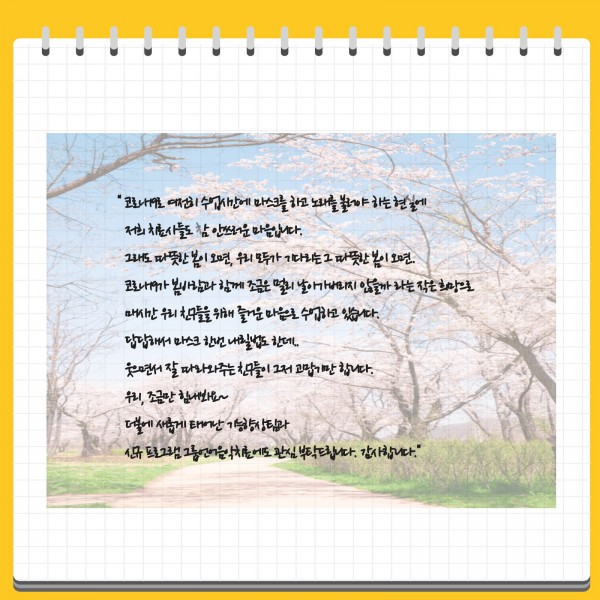 "코로나로 여전히 수업시간에 마스크를 하고 노래를 불러야 하는 현실에
저희 치료사들도 참 안쓰러운 마음입니다.
그래도 따뜻한 봄이 오면, 우리 모두가 기다리는 그 따뜻한 봄이 오면..
코로나가 봄바람과 함께 조금은 멀리 날아가버리지 않을까 하는 작은 희망으로
매시간 우리 친구들을 위해 즐거운 마음으로 수업하고 있습니다.
답답해서 마스크 한번 내릴법도 한데..
웃으면서 잘 따라와주는 친구들이 그저 고맙기만 합니다.
우리, 조금만 힘내봐요~
더불어 새롭게 태어난 기능향상팀과
신규 프로그램 그룹언어음악치료에도 관심 부탁드립니다. 감사합니다."